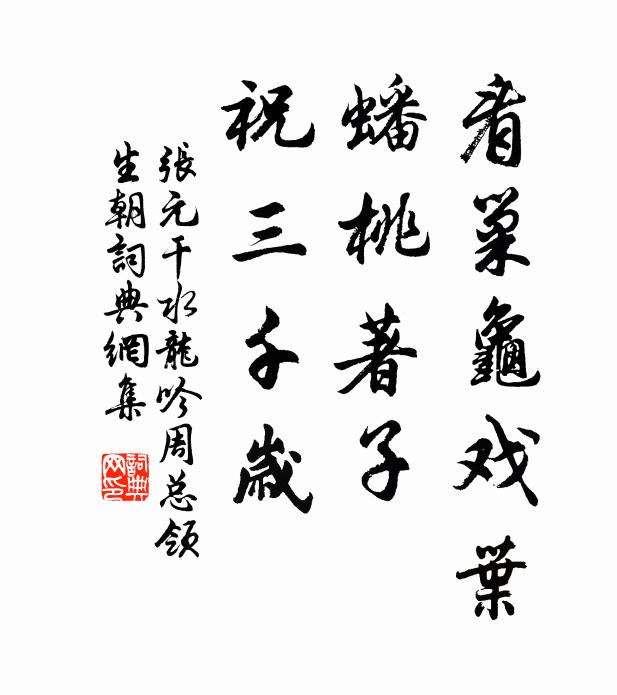 看巢龜戏葉
蟠桃著子
祝三千歲
張元干水龍吟周总領
生朝詞典網集
詞典
网印